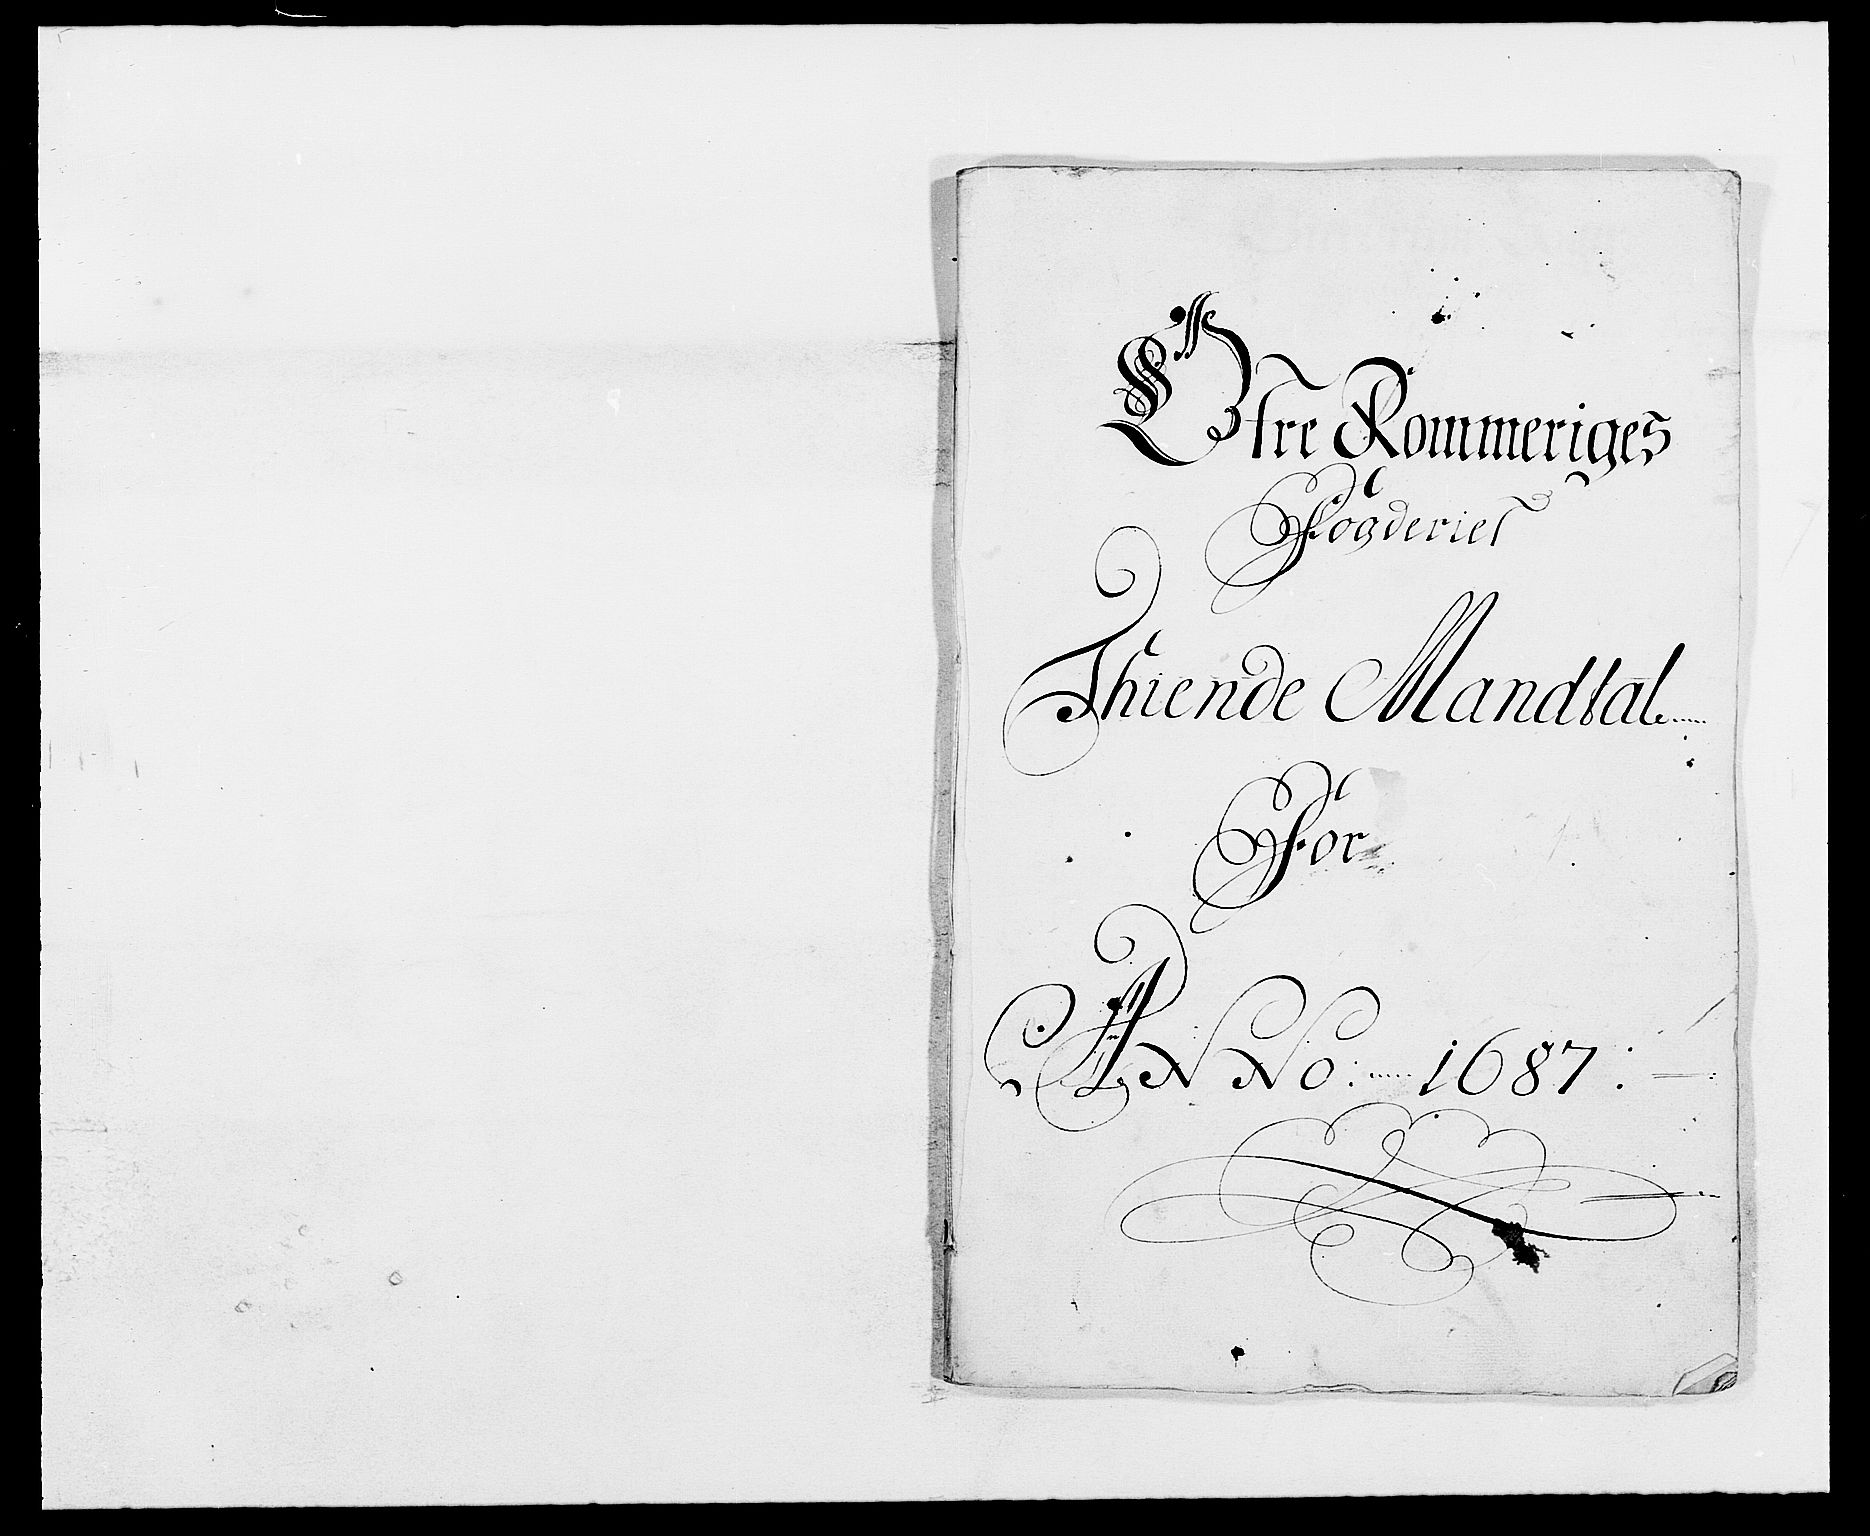 Öfre Rommeriges
Fogderies
Thiende Mandtal
For
ANNo: 1687: